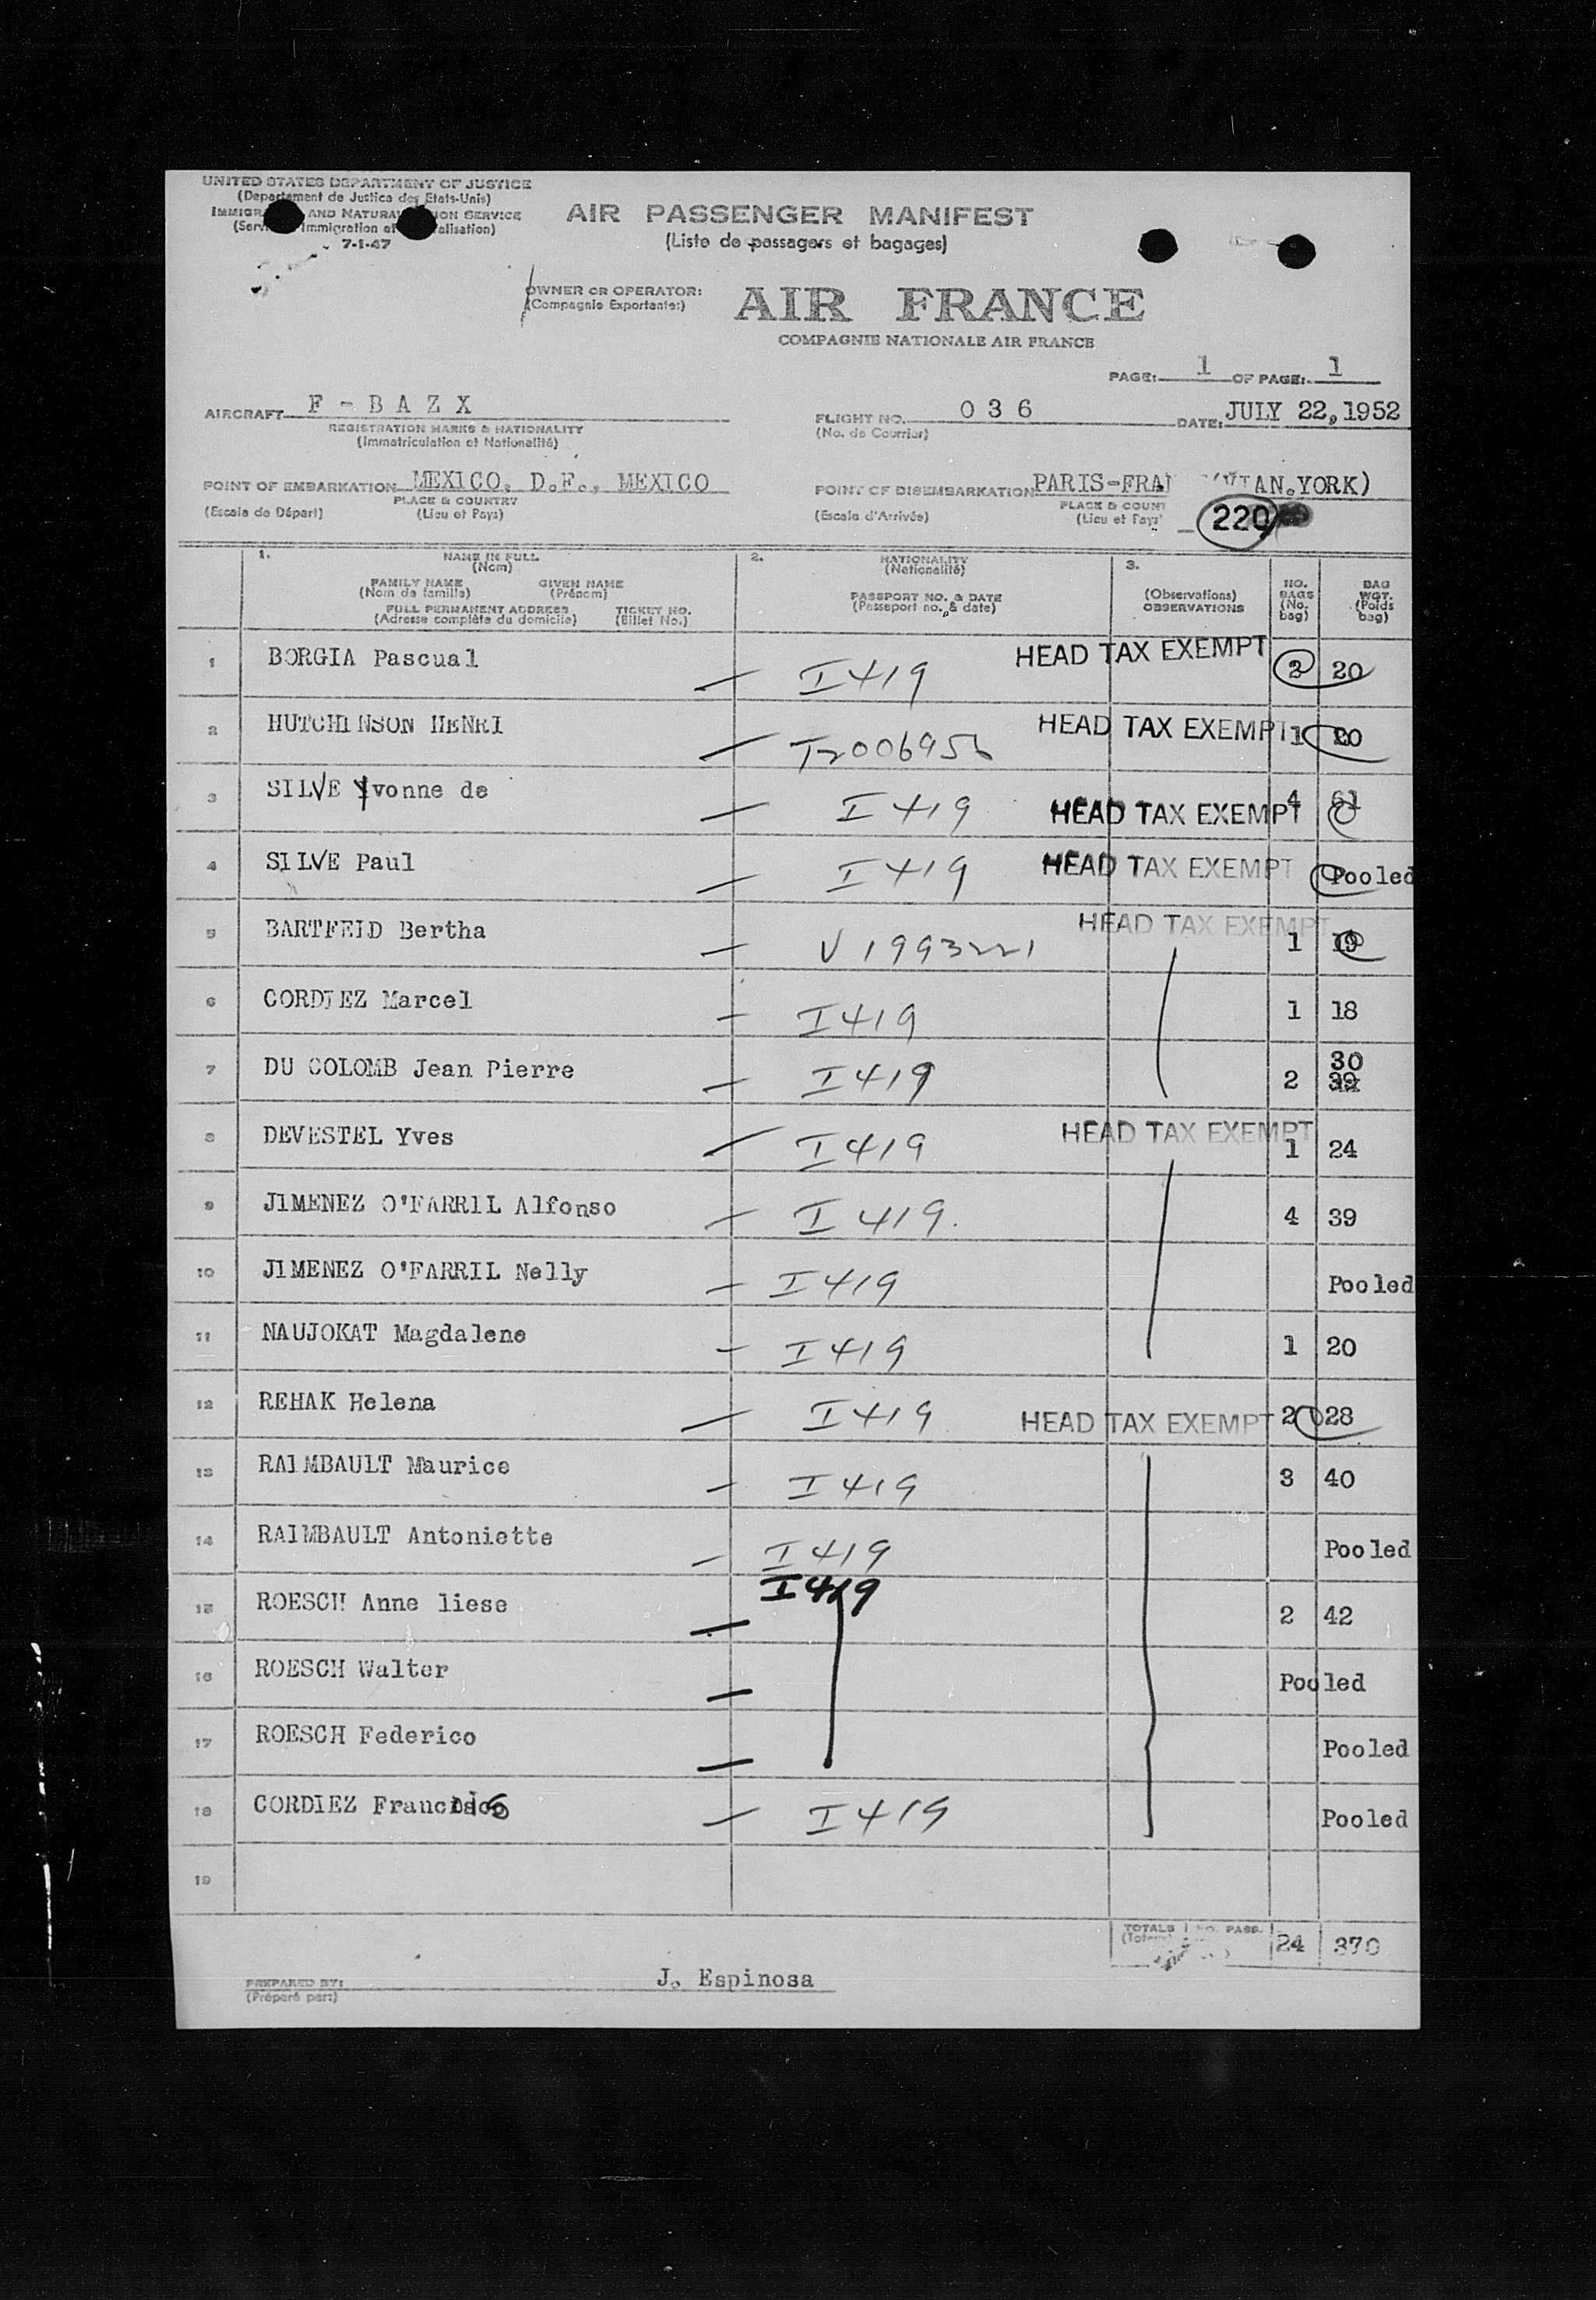 UNITED STATES DEPARTMENT OF JUSTICE
(Departement de Justice des Etats-Unis)
AND NATURA ION SERVICE
Immigration et alisation)
7-1-47
AIR PASSENGER MANIFEST
(Liste de passagers et bagages)
OWNER OR OPERATOR:
(Compagnie Exportante:)
AIR FRANCE
COMPAGNIE NATIONALE AIR FRANCE
PAGE: 1 OF PAGE: 1
AIRCRAFT F - B A Z X
REGISTRATION MARKS & NATIONALITY
(Immatriculation et Nationalité)
FLIGHT NO. 0 3 6
(No. de Courrier)
DATE: JULY 22,1952
POINT OF EMBARKATION MEXICO, D.F., MEXICO
PLACE & COUNTRY
(Escale de Départ) (Lieu et Pays)
POINT OF DISEMBARKATION PARIS-FRAN (VIAN.YORK)
PLACE & COUNT
(Escale d'Arrivée) (Lieu et Pays
220
1. NAME IN FULL
(Nom)
FAMILY NAME GIVEN NAME
(Nom de famille) (Prénom)
FULL PERMANENT ADDRESS TICKET NO.
(Adresse complète du domicile) (Billet No.)
2. NATIONALITY
(Nationalité)
PASSPORT NO. & DATE
(Passeport no. & date)
3.
(Observations)
OBSERVATIONS
NO. BAGS (No. bag)
BAG WGT. (Poids bag)
1 BORGIA Pascual — I419 HEAD TAX EXEMPT 2 20
2 HUTCHINSON HENRI — HEAD TAX EXEMPT 1 20
3 SILVE Yvonne de — I 419 HEAD TAX EXEMPT 4 61
4 SILVE Paul — I 419 HEAD TAX EXEMPT Pooled
5 BARTFEID Bertha — V 1993221 HEAD TAX EXEMPT 1 19
6 CORDIEZ Marcel — I419 1 18
7 DU COLOMB Jean Pierre — I419 2 30 39
8 DEVESTEL Yves — I419 HEAD TAX EXEMPT 1 24
9 JIMENEZ O'FARRIL Alfonso — I 419. 4 39
10 JIMENEZ O'FARRIL Nelly — I419 Pooled
11 NAUJOKAT Magdalene — I419 1 20
12 REHAK Helena — I419 HEAD TAX EXEMPT 2 28
13 RAIMBAULT Maurice — I419 3 40
14 RAIMBAULT Antoniette — I419 Pooled
15 ROESCH Anne liese — I419 2 42
16 ROESCH Walter — Pooled
17 ROESCH Federico — Pooled
18 CORDIEZ — I419 Pooled
19
TOTALS PASS. 24 370
PREPARED BY: J. Espinosa
(Préparé par:)